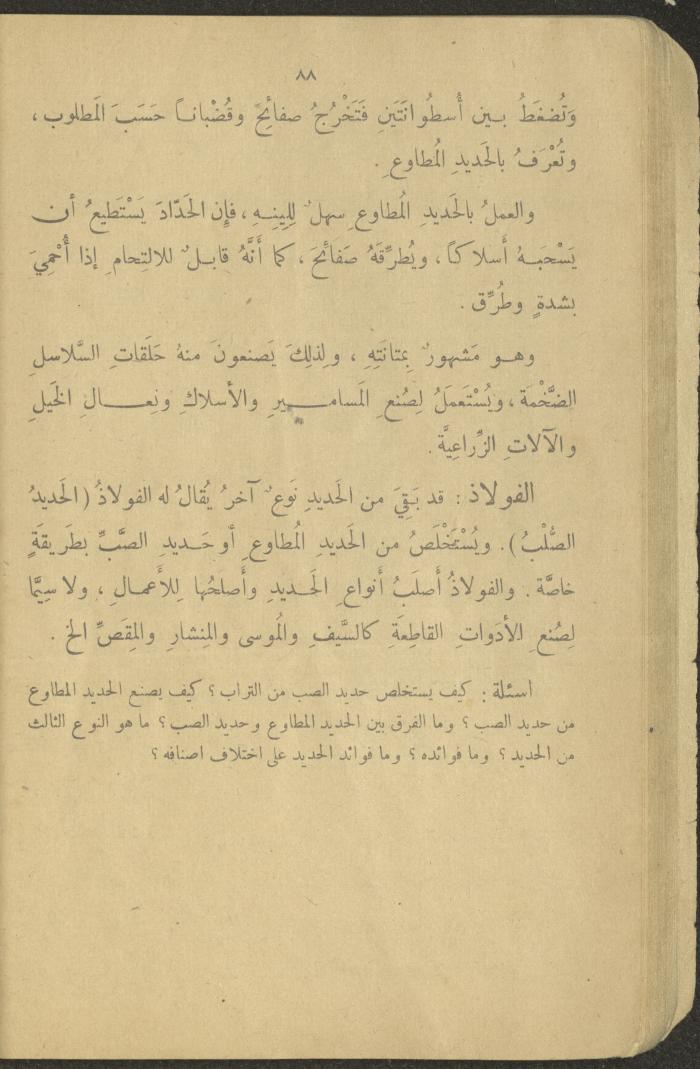 ٨٨
وَتُضغَطُ بـين أُسطُوانَتَينِ فَتَخْرُجُ صفائِحَ وقُضْباناً حَسَبَ المَطلوب ،
وتُعْرَفُ بالحَديدِ المُطاوع .
والعملُ بالحَديدِ المُطاوعِ سهلٌ لِلِينِـهِ ، فإِن الحَدّادَ يَسْتَطيعُ أن
يَسْحَبـهُ أَسلاكاً ، ويُطرِّقَهُ صَفائِحَ ، كما أَنَّهُ قابـلٌ للالتِحامِ إذا أُحْمِيَ
بشدةٍ وطُرِّق .
وهـو مَشهورٌ بِمتانَتِهِ ، ولِذلِكَ يَصنعونَ منهُ حلَقاتِ السَّلاسلِ
الضَّخْمة ، ويُسْتَعمَلُ لِصُنعِ المَساميـرِ والأسلاكِ ونِعـالِ الخَيلِ
والآلاتِ الزِّراعِيَّة .
الفولاذ : قد بَقِيَ من الحَديدِ نَوعٌ آخرُ يُقالُ له الفولاذُ (الحَديدُ
الصُّلْبُ) . ويُسْتَخْلَصُ من الحَديدِ المُطاوعِ أو حَـديدِ الصَّبِّ بطَريقَةٍ
خاصَّة . والفولاذُ أَصلَبُ أَنواعِ الحَـديدِ وأَصلحُها لِلأَعمـالِ ، ولا سِيَّما
لِصُنعِ الأدَواتِ القاطِعَةِ كالسَّيفِ والمُوسى والمِنشارِ والمِقَصِّ الخ .
اسئلة : كيف يستخلص حديد الصب من التراب ؟ كيف يصنع الحديد المطاوع
من حديد الصب ؟ وما الفرق بين الحديد المطاوع وحديد الصب ؟ ما هو النوع الثالث
من الحديد ؟ وما فوائده ؟ وما فوائد الحديد على اختلاف اصنافه ؟